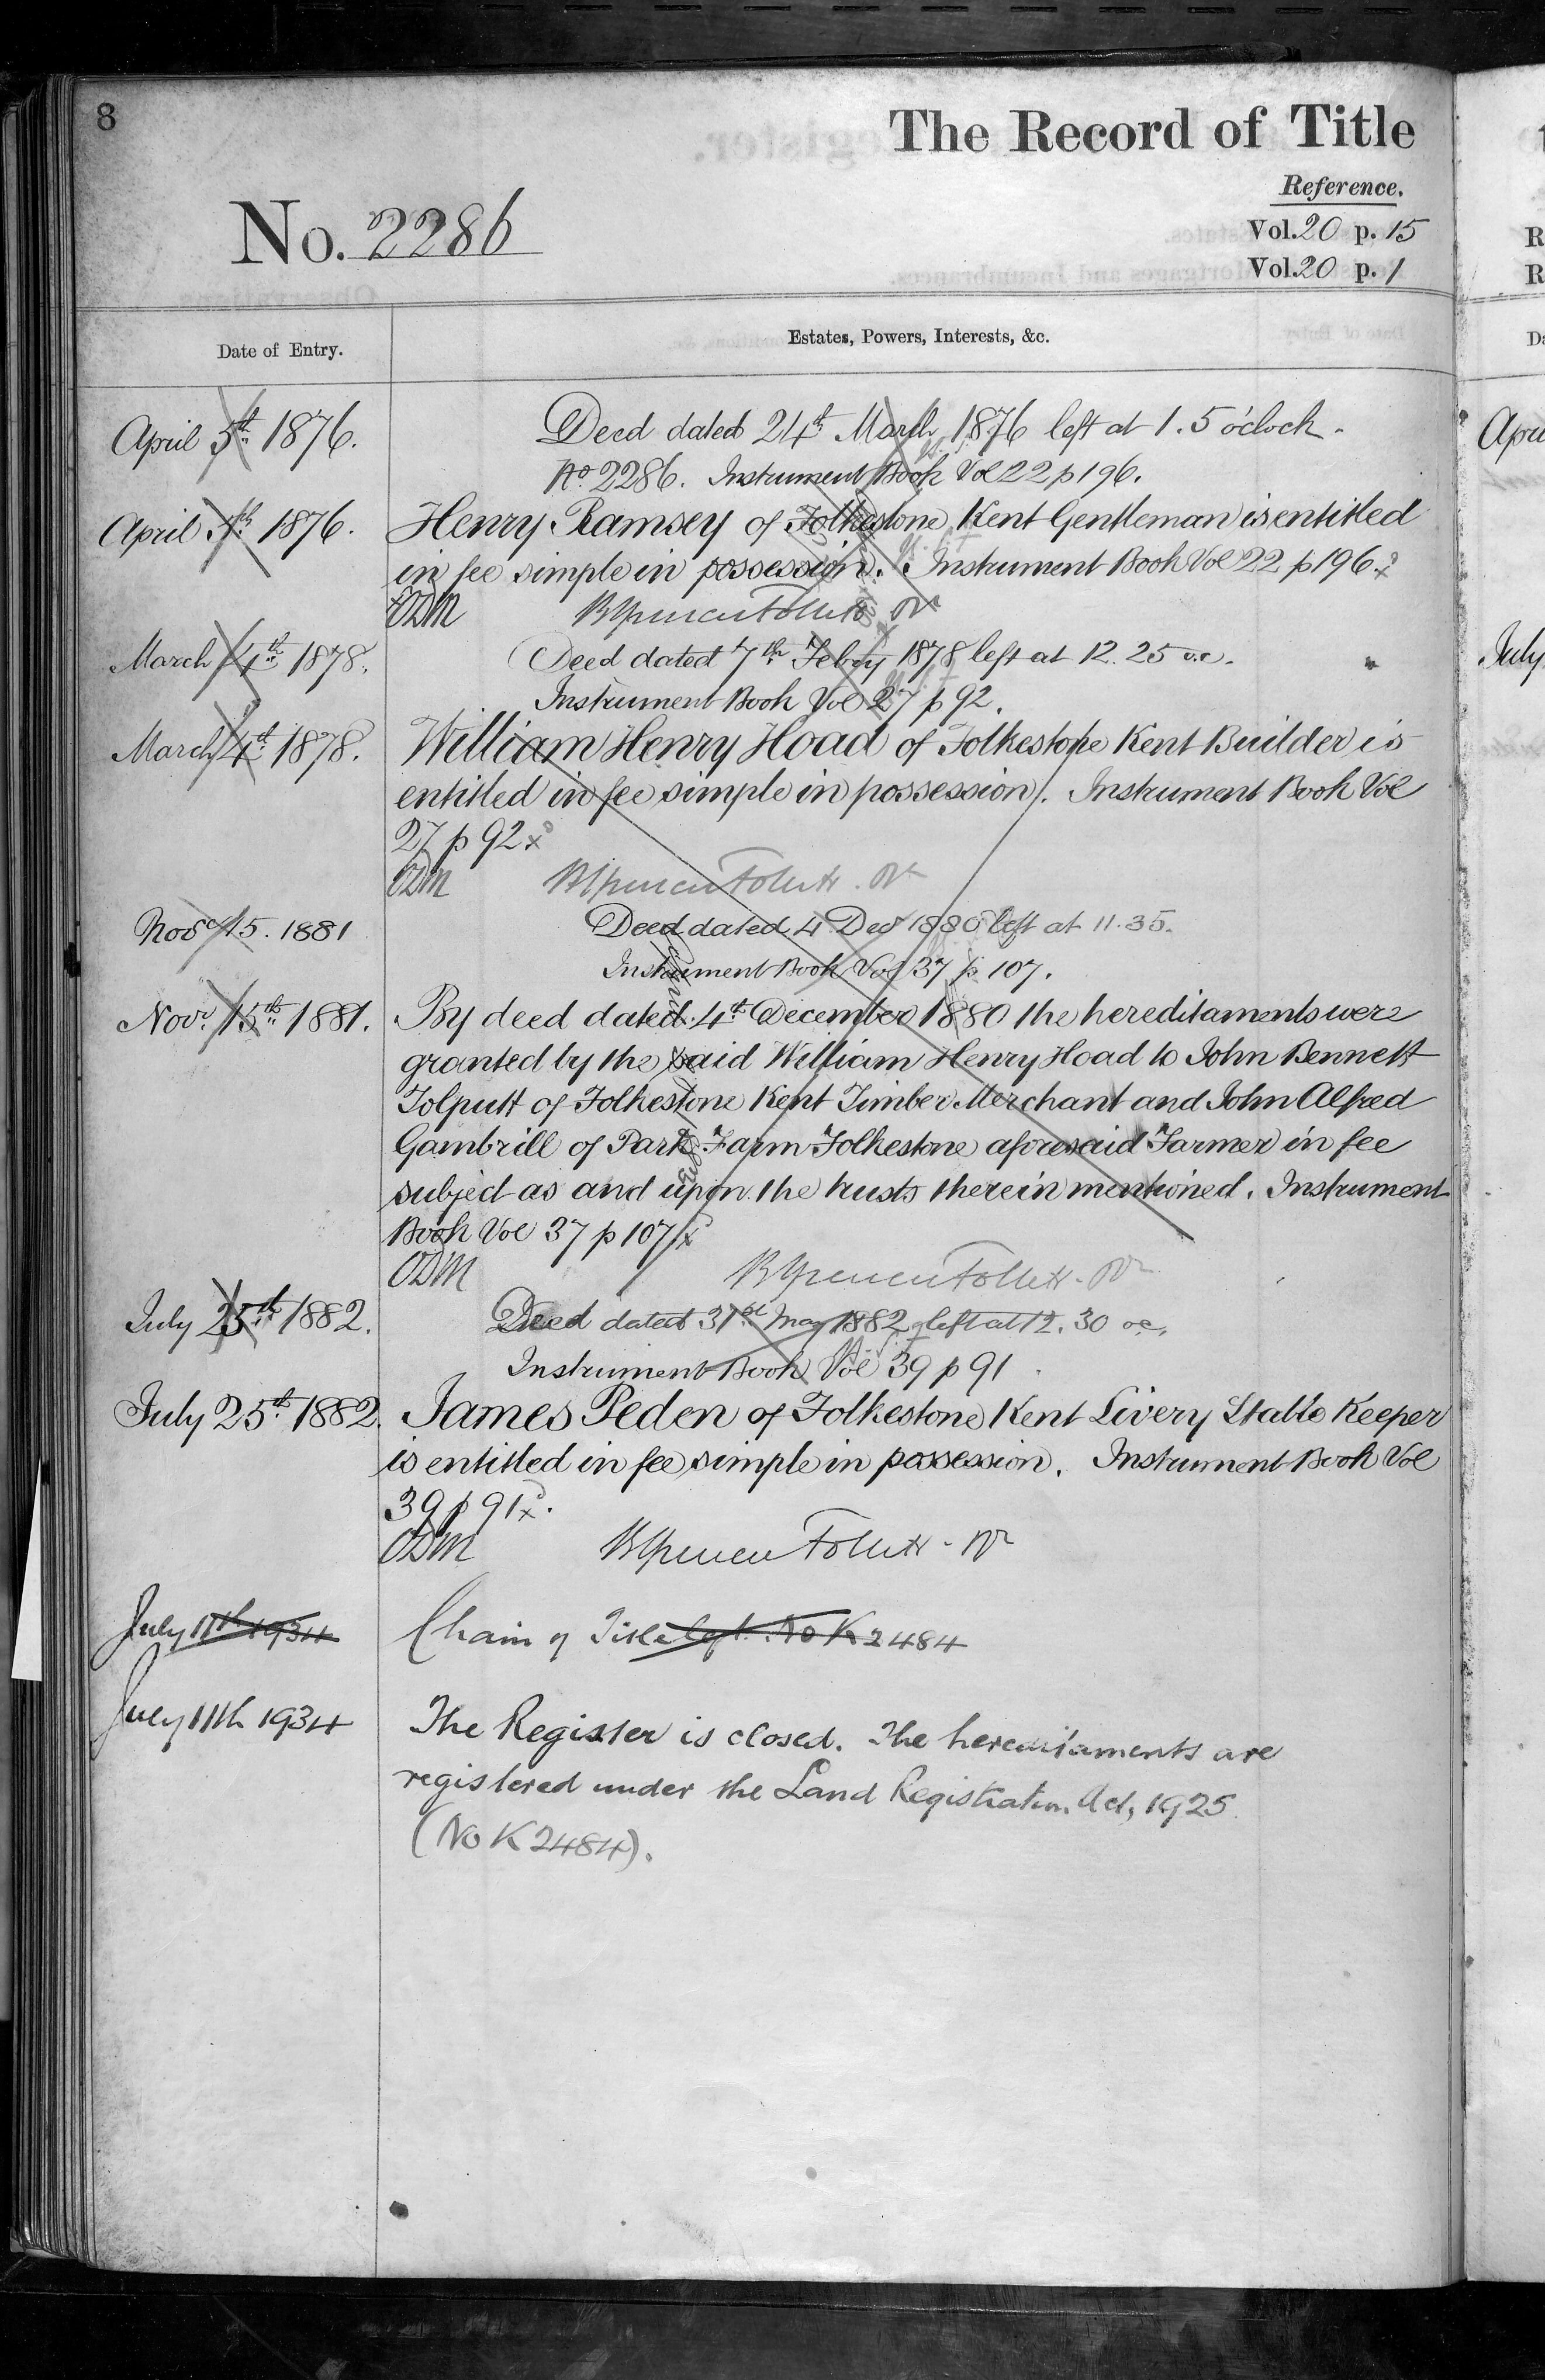 8
The Record of Title
Reference.
No. 2286
Vol. 20 p. 15
Vol. 20 p. 1
Date of Entry.
Estates, Powers, Interests, &c.
April 5th 1876.
Deed dated 24th March 1876 left at 1.5 o'clock.
No 2286. Instrument Book Vol 22 p 196.
April 5th 1876.
Henry Ramsey of Folkestone Kent Gentleman is entitled
in fee simple in possession. Instrument Book Vol 22 p 196.
March 4th 1878.
Deed dated 7th Feby 1878 left at 12.25 o.c.
Instrument Book Vol 27 p 92.
March 4th 1878.
William Henry Hoad of Folkestone Kent Builder is
entitled in fee simple in possession. Instrument Book Vol
27 p 92
Novr 15. 1881
Deed dated 4 Decr 1880 left at 11.35.
Instrument Book Vol 37 p 107.
Novr 15th 1881.
By deed dated 4th December 1880 the hereditaments were
granted by the said William Henry Hoad to John Bennett
Tolputt of Folkestone Kent Timber Merchant and John Alfred
Gambrill of Park Farm Folkestone aforesaid Farmer in fee
subject as and upon the trusts therein mentioned. Instrument
Book Vol 37 p 107
July 25th 1882.
Deed dated 31st May 1882 left at 12.30 oc.
Instrument Book Vol 39 p 91
July 25th 1882.
James Peden of Folkestone Kent Livery Stable Keeper
is entitled in fee simple in possession. Instrument Book Vol
39 p 91.
July 11th 1934
Chain of Title left. No K 2484
July 11th 1934
The Register is closed. The hereditaments are
registered under the Land Registration Act, 1925.
(No K 2484).
R
R
Da
Apri
July